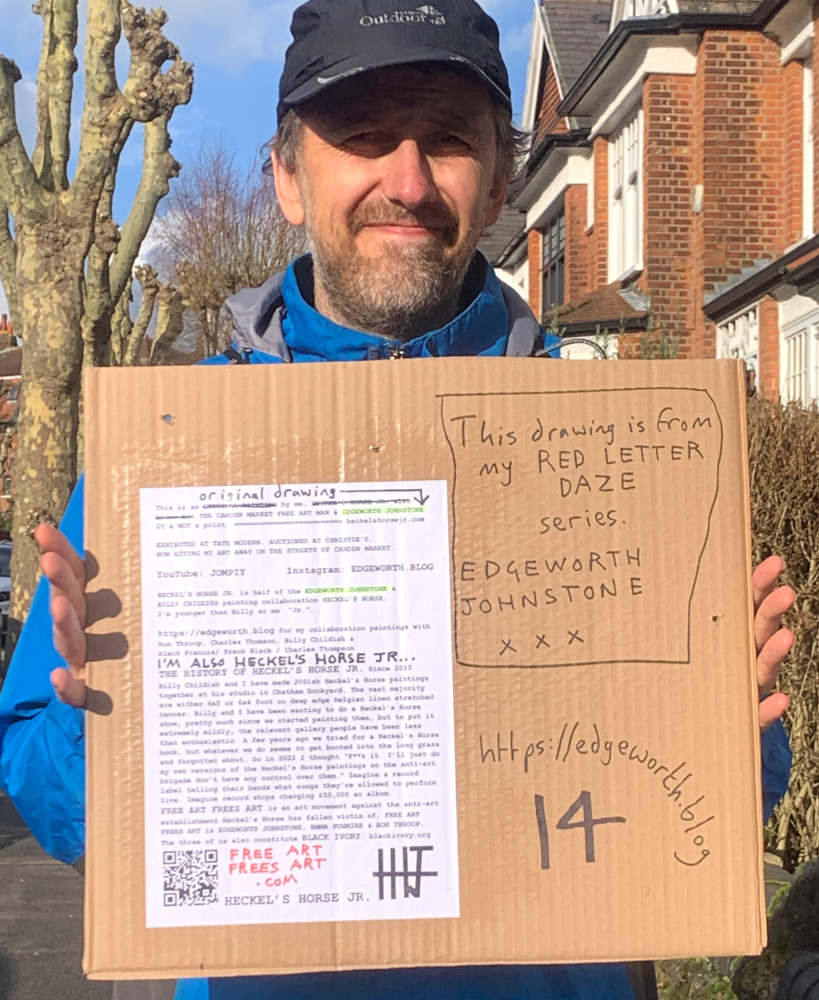 Outdoor
original drawing
This is an ORIGINAL PAINTING by me, HECKEL'S HORSE JR. also
THE CAMDEN MARKET FREE ART MAN & EDGEWORTH JOHNSTONE
It's NOT a print. heckelshorsejr.com
EXHIBITED AT TATE MODERN. AUCTIONED AT CHRISTIE'S.
NOW GIVING MY ART AWAY ON THE STREETS OF CAMDEN MARKET.
YouTube: JOMPIY Instagram: EDGEWORTH.BLOG
HECKEL'S HORSE JR. is half of the EDGEWORTH JOHNSTONE &
BILLY CHILDISH painting collaboration HECKEL'S HORSE.
I'm younger than Billy so am "Jr.".
https://edgeworth.blog for my collaboration paintings with
Ron Throop, Charles Thomson, Billy Childish &
Black Francis/ Frank Black / Charles Thompson
I'M ALSO HECKEL'S HORSE JR...
THE HISTORY OF HECKEL'S HORSE JR. Since 2013
Billy Childish and I have made 200ish Heckel's Horse paintings
together at his studio in Chatham Dockyard. The vast majority
are either 6x5 or 6x4 foot on deep edge Belgian linen stretched
canvas. Billy and I have been wanting to do a Heckel's Horse
show, pretty much since we started painting them, but to put it
extremely mildly, the relevant gallery people have been less
than enthusiastic. A few years ago we tried for a Heckel's Horse
book, but whatever we do seems to get booted into the long grass
and forgotten about. So in 2022 I thought "F**k it. I'll just do
my own versions of the Heckel's Horse paintings so the anti-art
brigade don't have any control over them." Imagine a record
label telling their bands what songs they're allowed to perform
live. Imagine record shops charging £50,000 an album.
FREE ART FREES ART is an art movement against the anti-art
establishment Heckel's Horse has fallen victim of. FREE ART
FREES ART is EDGEWORTH JOHNSTONE, EMMA PUGMIRE & RON THROOP.
The three of us also constitute BLACK IVORY: blackivory.org
FREE ART
FREES ART
.COM
HECKEL'S HORSE JR.
HJ
This drawing is from
my RED LETTER
DAZE
series.
EDGEWORTH
JOHNSTONE
x x x
https://edgeworth.blog
14